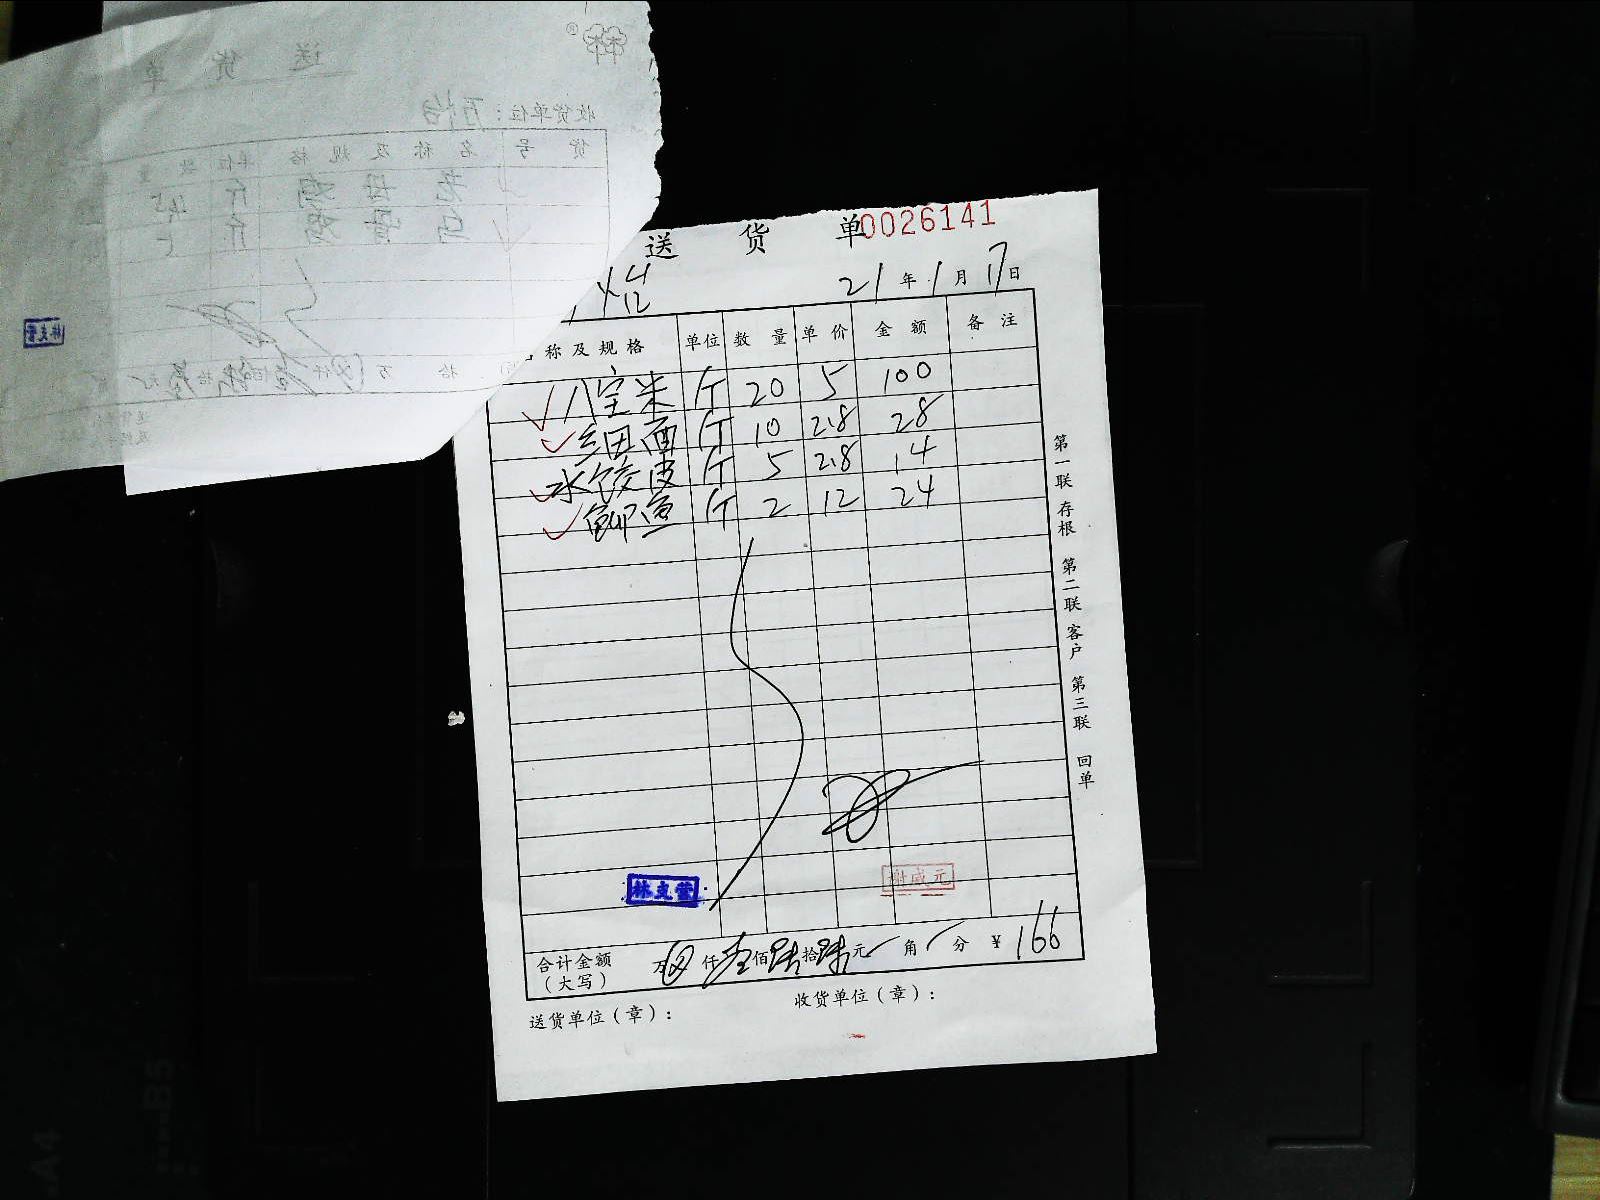 送 货 单
收货单位:万怡
货 号 名 称 及 规 格 单位 数 量
老母鸡 斤 45
乌骨鸡 斤 5
拾 万 仟 佰 拾 元
林克蓥
送 货 单 0026141
21 年 1 月 17 日
名称及规格 单位 数 量 单 价 金 额 备 注
八宝米 斤 20 5 100
细面 斤 10 2.8 28
水饺皮 斤 5 2.8 14
鲫鱼 斤 2 12 24
林克蓥
谢成元
合计金额(大写) 万 仟 壹 佰 陆 拾 陆 元 角 分 ¥ 166
送货单位(章): 收货单位(章):
第一联 存根 第二联 客户 第三联 回单
A4
B5